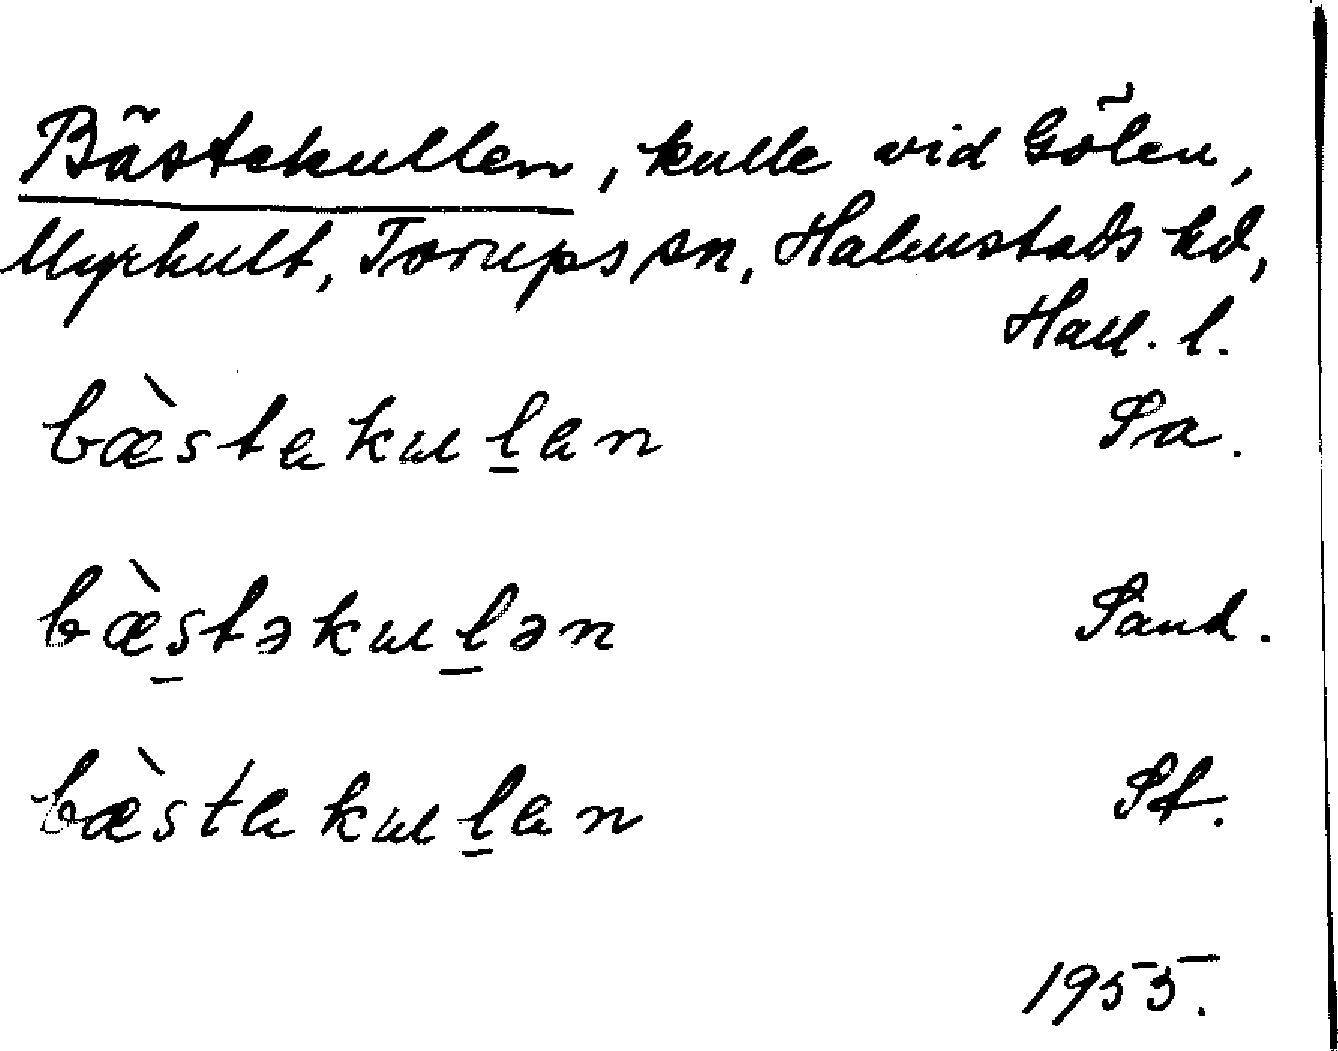 Bästekullen, kulle vid Gölen,
Myrhult, Torups sn, Halmstads hd,
Hall. l.
bæ̀stekuḻen Sa.
bæ̀s̱təkuḻən Sand.
bæ̀stekuḻen St.
1955.